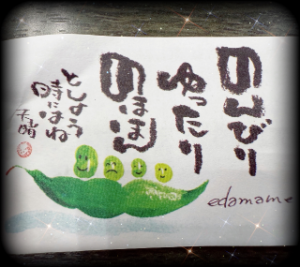 のんびり
ゆったり
のほほん
としよう
時にはね
天晴
edamame